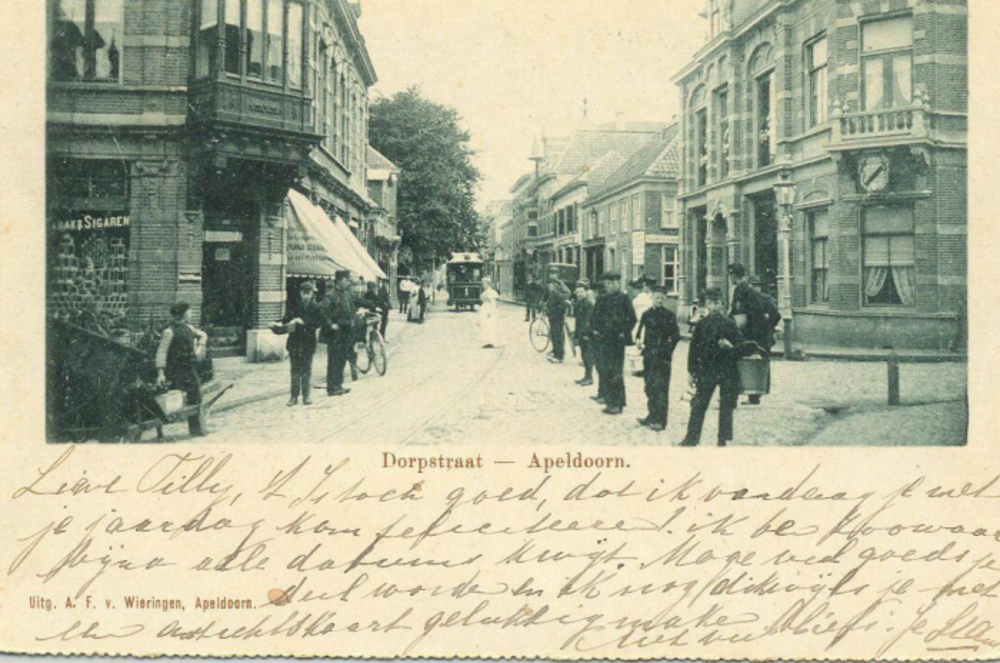 SIGAREN
Dorpstraat — Apeldoorn.
Lieve Tilly, 't Is toch goed, dat ik vandaag je met
je jaardag kom feliciteere! ik ben zoowaar
bijna alle datums kwijt. Moge veel goeds je
deel worden en ik nog dikwijls je met
Uitg. A. F. v. Wieringen, Apeldoorn.
een ansichtskaart gelukkig make
Met veel liefs. je